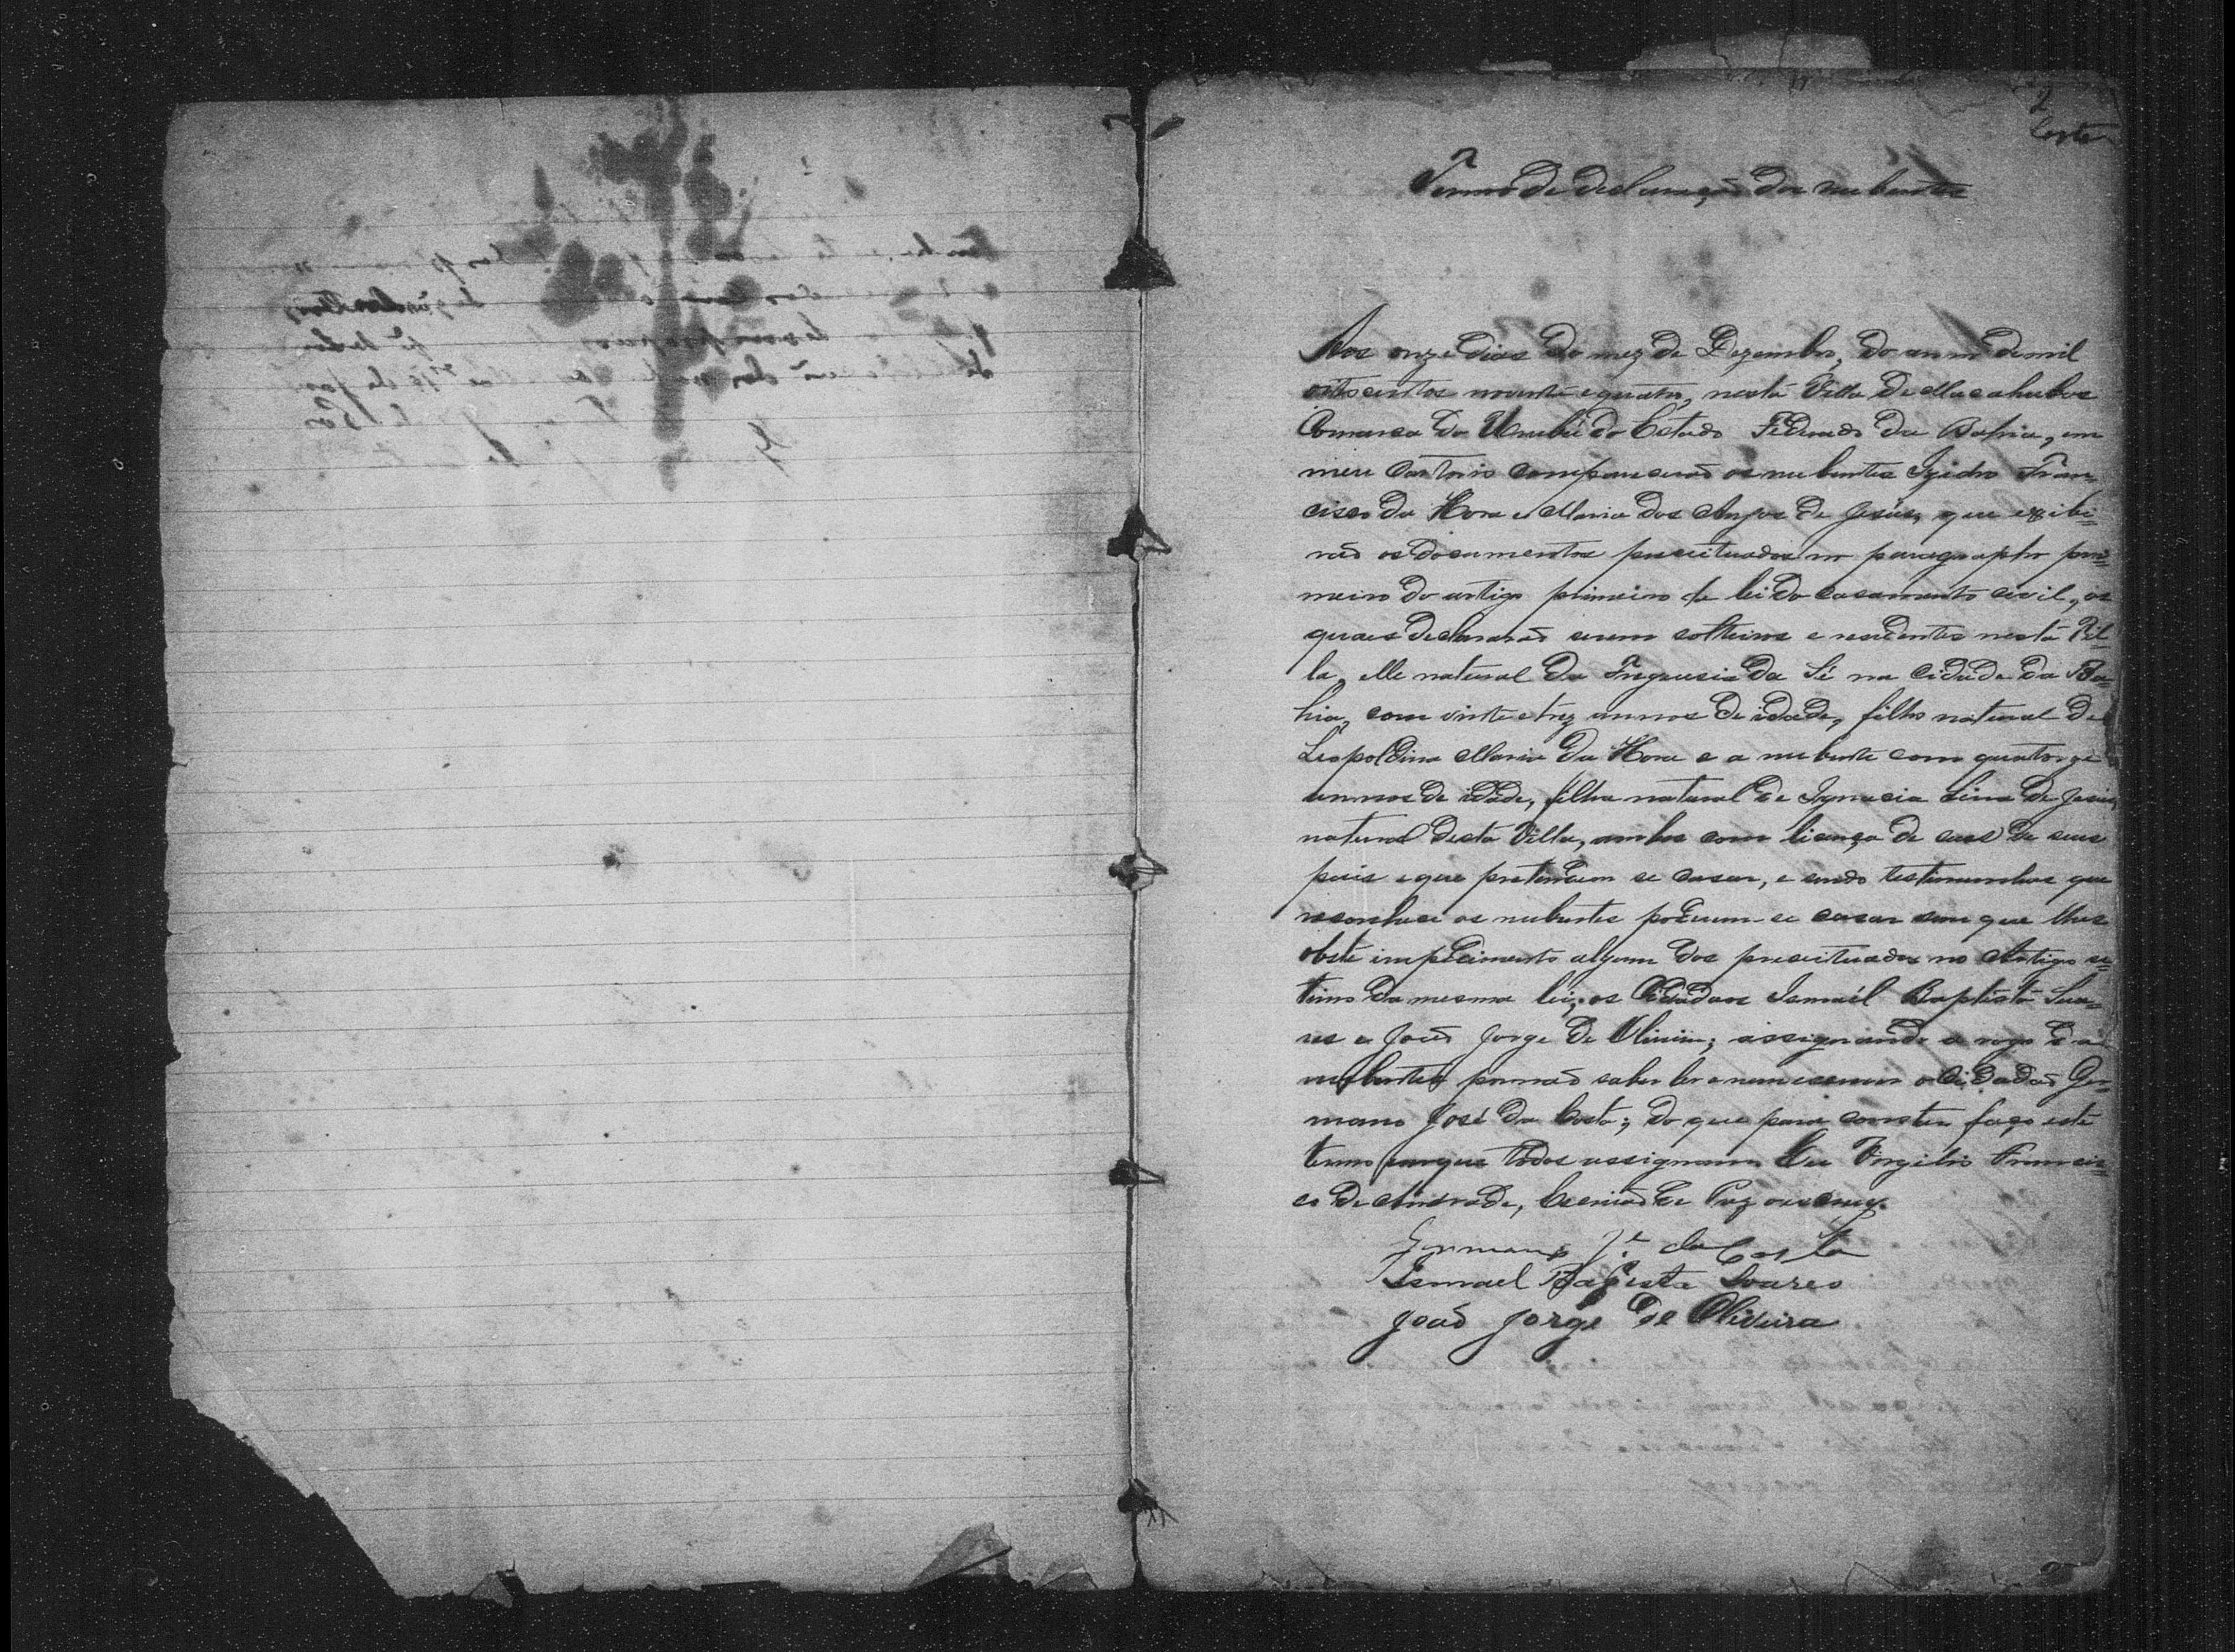 2
Costa
Termo de declaração dos nubentes
Aos onze dias do mez de Dezembro, do anno de mil
oitocentos noventa e quatro, nesta Villa de Macahubas
Comarca do Urubú do Estado Federado da Bahia, em
meu Cartorio comparecerão os nubentes Izidro Fran-
cisco da Hora e Maria dos Anjos de Jesús, que exibi=
rão os documentos preceituados no paragrapho pri=
meiro do artigo primeiro da lei do casamento civil, os
quaes declararão serem solteiros e residentes nesta Vil
la, elle natural da Freguesia da Sé na Cidade da Ba=
hia, com vinte e trez annos de idade, filho natural de
Leopoldina Maria da Hora e a nubente com quatorze
annos de idade, filha natural de Ignacia Lina de Jesus,
natural desta Villa, ambos com licença de seus de seus
pais e que pretendem se casar, e sendo testemunhas que
reconhece os nubentes poderem se casar sem que lhes
obste impedimento algum dos preceituados no Artigo se=
timo da mesma lei; os Cidadãos Ismaél Baptista Sua=
res e João Jorge de Oliveira; assignando a rogo da
nubentes por não saber ler e nem escrever o Cidadão Ger=
mano José da Costa; do que para constar faço este
termo em que todos assignam. Eu Virgilio Francis=
co de Andrade, Escrivão de Paz o escrevy.
Germano Jé. da Costa
Ismael Bapista Soares
João Jorge de Oliveira